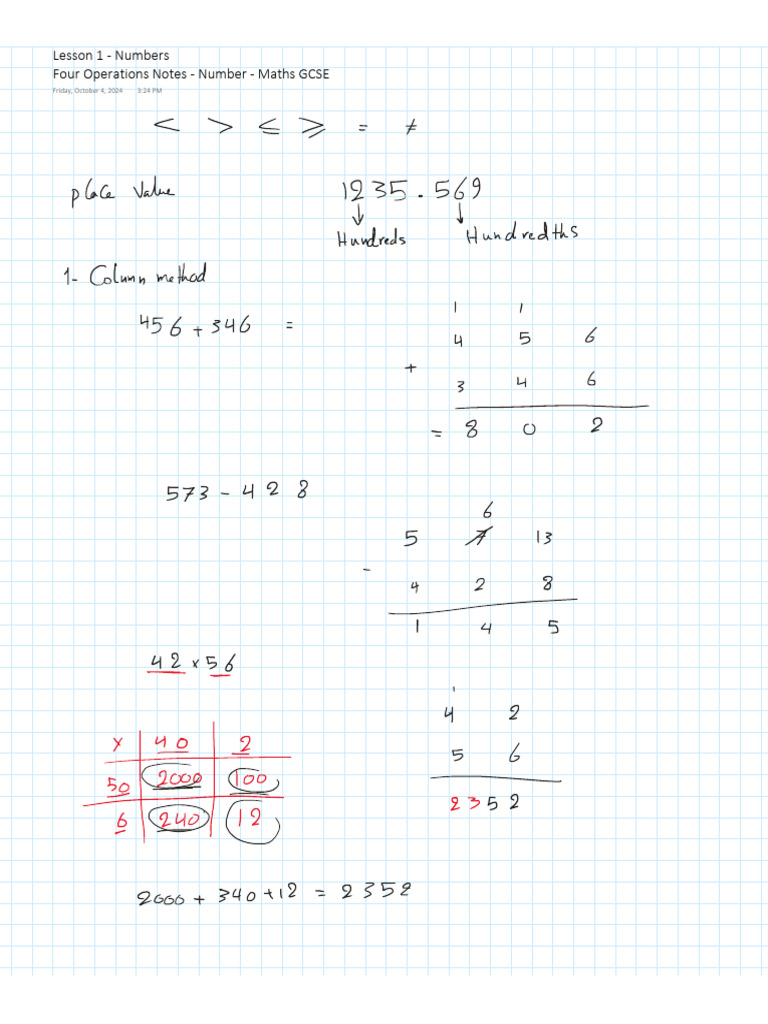 Lesson 1 - Numbers
Four Operations Notes - Number - Maths GCSE
Friday, October 4, 2024 3:24 PM
< > ≤ ≥ = ≠
place value 1235.569
Hundreds Hundredths
1- Column method
456 + 346 =
1 1
4 5 6
+
3 4 6
= 8 0 2
573 - 428
6
5 7 13
-
4 2 8
1 4 5
42 x 56
x 40 2
50 2000 100
6 240 12
1
4 2
5 6
2352
2000 + 340 + 12 = 2352